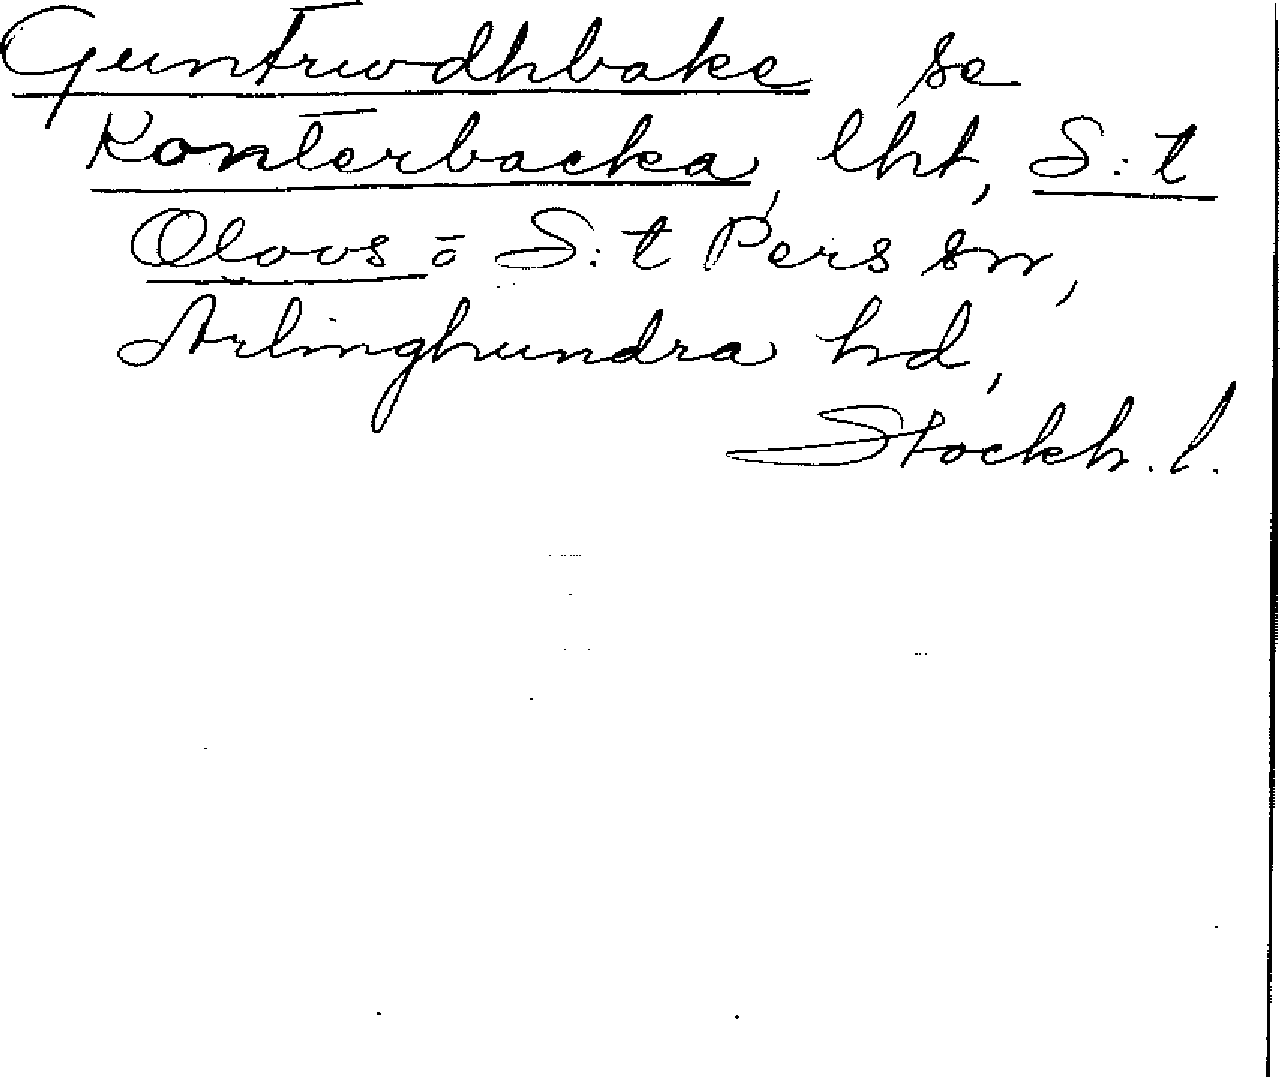 Guntrwdhbake se
Konterbacka, lht, S:t
Olovs o S:t Pers sn,
Arlinghundra hd,
Stockh. l.